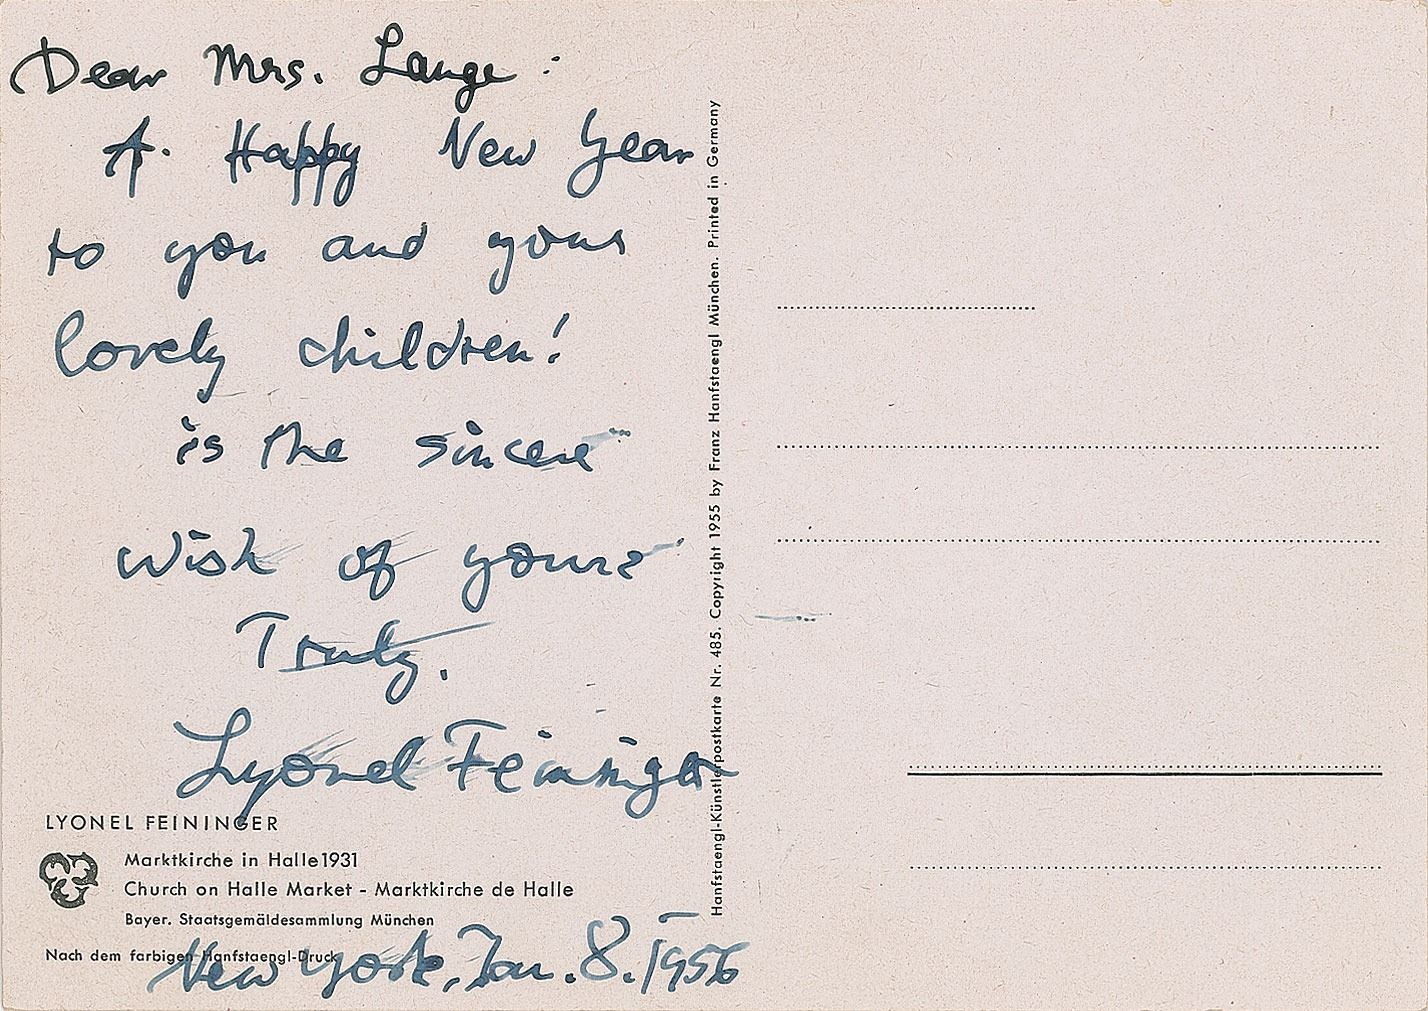 Dear Mrs. Lange:
A Happy New Year
to you and your
lovely children!
is the sincere
wish of yours
Truly.
Lyonel Feininger
LYONEL FEININGER
Marktkirche in Halle 1931
Church on Halle Market - Marktkirche de Halle
Bayer. Staatsgemäldesammlung München
Nach dem farbigen Hanfstaengl-Druck
New York, Jan. 8. 1956
Hanfstaengl-Künstlerpostkarte Nr. 485. Copyright 1955 by Franz Hanfstaengl München. Printed in Germany